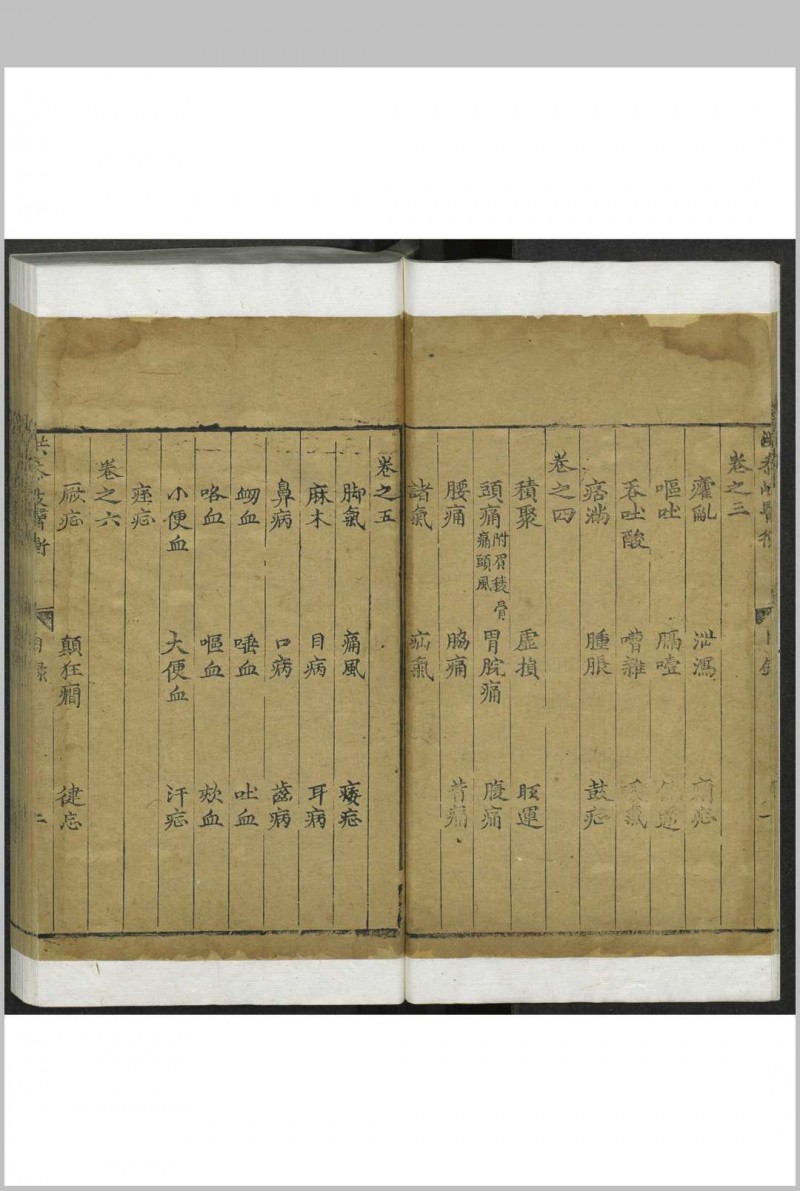 卷之三
癨亂 泄瀉 痢疕
嘔吐 膈噎
吞吐酸 嘈雜
痞満 腫脹 鼓疕
卷之四
積聚 虛損 眩運
頭痛附眉稜骨痛頭風 胃脘痛 腹痛
腰痛 脇痛 背痛
諸氣 疝氣
卷之五
脚氣 痛風 痿疕
麻木 目病 耳病
鼻病 口病 齒病
衂血 唾血 吐血
咯血 嘔血 欬血
小便血 大便血 汗疕
痓疕
卷之六
厥疕 顛狂癎 健忘
目錄 二